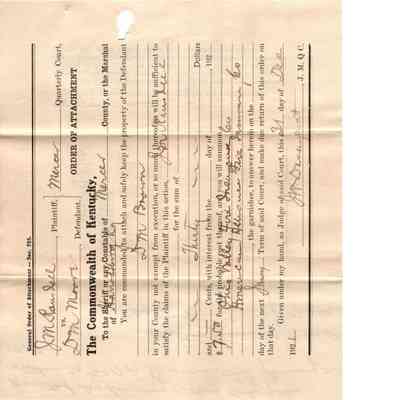 General Order of Attachment—Sec. 705.
Mercer Quarterly Court,
J M Plaintiff,
vs.
D M Moore Defendant.
ORDER OF ATTACHMENT
The Commonwealth of Kentucky,
To the Sheriff or any Constable of Mercer County, or the Marshal
of
You are commanded to attach and safely keep the property of the Defendant
D M Brown
in your County not exempt from execution, or so much thereof as will be sufficient to
satisfy the claims of the Plaintiff in this action,
for the sum of
Thirty Dollars
and Costs, with interest from the day of 192
$7.50 for the probable cost thereof, and you will summon
Ohio Valley Fire Insurance Co
American Fire Insurance Co
the garnishee, to answer herein on the
day of the next Jany Term of said Court, and make due return of this order on
that day.
Given under my hand, as Judge of said Court, this 31 day of Dec
192 J. M. Q. C.